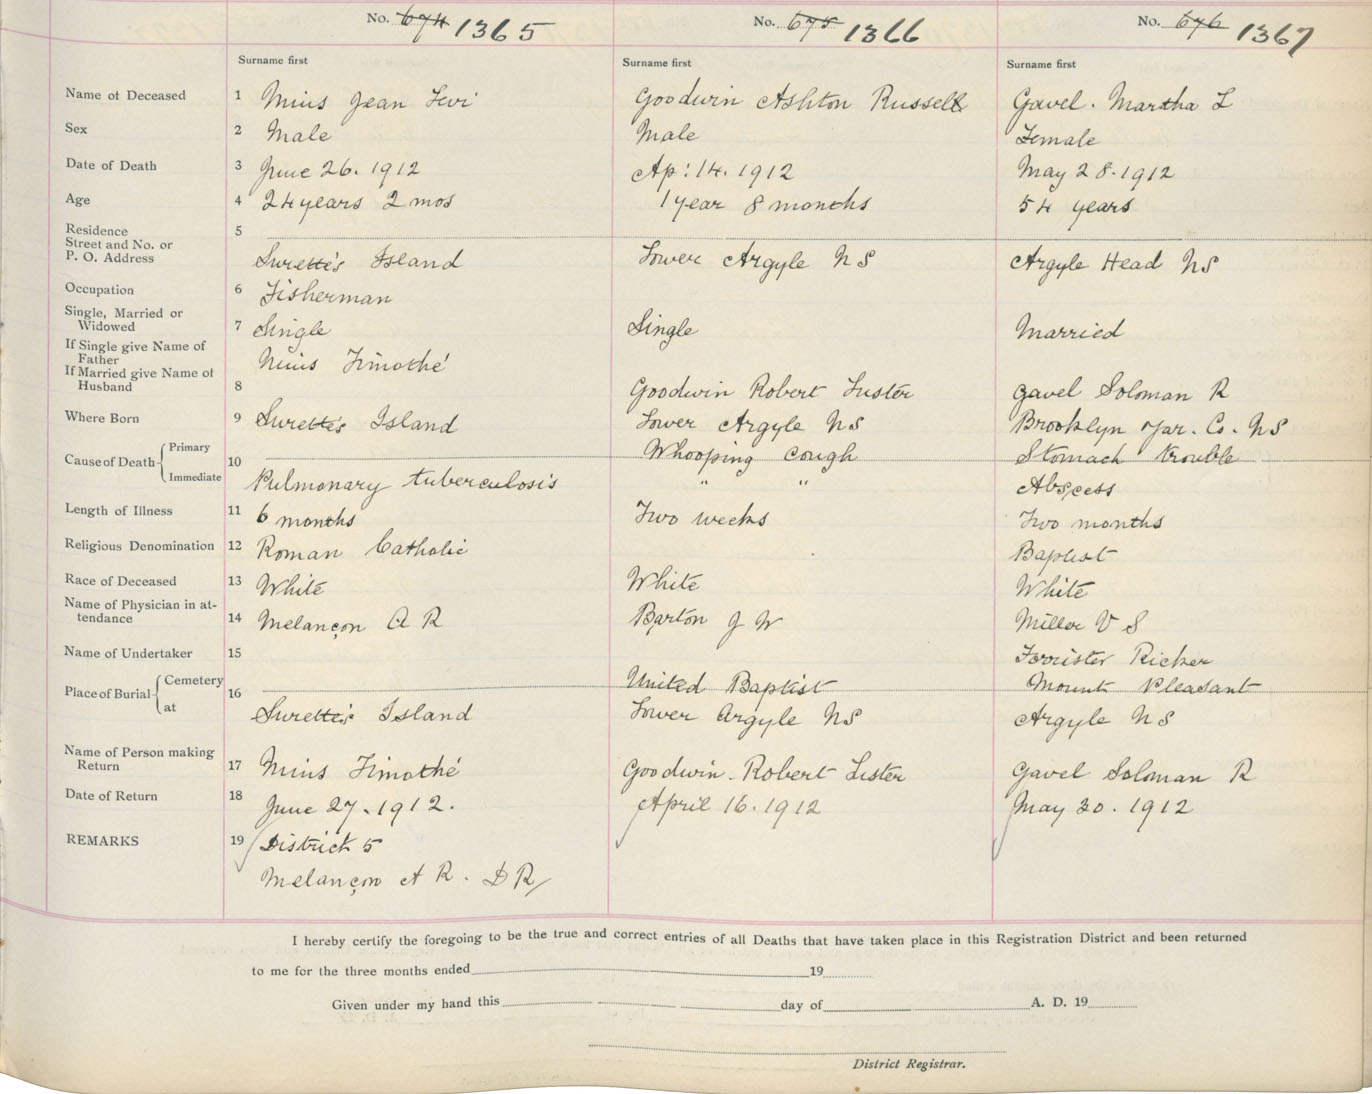 No. 674 1365 No. 675 1366 No. 676 1367
Surname first Surname first Surname first
Name of Deceased 1 Mius Jean Levi Goodwin Ashton Russell Gavel. Martha L
Sex 2 Male Male Female
Date of Death 3 June 26. 1912 Ap: 14. 1912 May 28. 1912
Age 4 24 years 2 mos 1 year 8 months 54 years
Residence 5
Street and No. or
P. O. Address Surette's Island Lower Argyle NS Argyle Head NS
Occupation 6 Fisherman
Single, Married or
Widowed 7 Single Single Married
If Single give Name of
Father Mius Timothé
If Married give Name of
Husband 8 Goodwin Robert Lister Gavel Soloman R
Where Born 9 Surette's Island Lower Argyle NS Brooklyn Yar. Co. NS
Cause of Death 10 Primary Whooping Cough Stomach trouble
Immediate Pulmonary tuberculosis " " Abscess
Length of Illness 11 6 months Two weeks Two months
Religious Denomination 12 Roman Catholic Baptist
Race of Deceased 13 White White White
Name of Physician in at-
tendance 14 Melançon A R Barton J W Miller V S
Name of Undertaker 15 Forrister Ricker
Place of Burial 16 Cemetery United Baptist Mount Pleasant
at Surette's Island Lower Argyle NS Argyle NS
Name of Person making
Return 17 Mius Timothé Goodwin. Robert Lister Gavel Soloman R
Date of Return 18 June 27. 1912. April 16. 1912 May 30. 1912
REMARKS 19 District 5
Melançon A R. D R
I hereby certify the foregoing to be the true and correct entries of all Deaths that have taken place in this Registration District and been returned
to me for the three months ended 19
Given under my hand this day of A. D. 19
District Registrar.